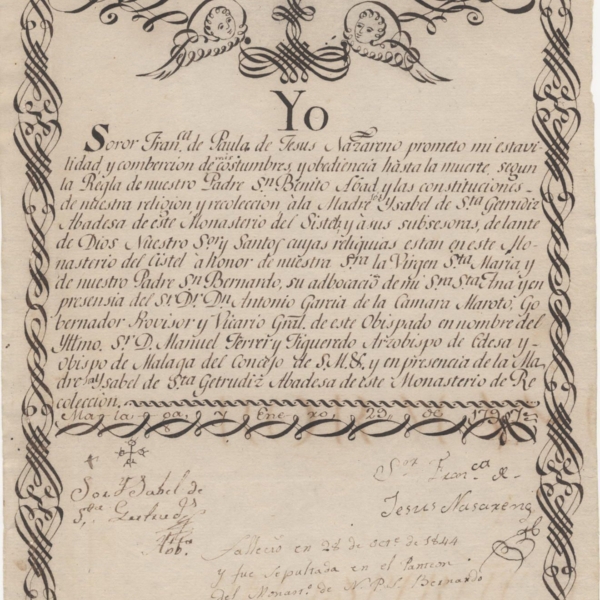 Yo
Soror Fran.ca de Paula de Jesus Nazareno prometo mi estavi-
lidad y combercion de mis costumbres, y obediencia hàsta la muerte, segun
la Règla de nuestro Padre S.n Benito Abad y las constituciones
de nuestra religion, y recolección àla Madre Ysabel de S.ta Getrudiz
Abadesa de èste Monasterio del Sistèl, y àsus subsesoras, de lante
de Dios Nuestro S.or y Santos cuyas reliquias estan en este Mo-
nasterio del Cistel à honor de nuestra S.ra la Virgen S.ta Maria y
de nuestro Padre S.n Bernardo, su advocació de mi S.ra S.ta Ana y en
presensia del S.r D.r D.n Antonio Garcia de la Camara Maroto, Go
bernador Provisor y Vicario Gràl. de este Obispado en nombre del
Yttmo. S.r D. Manuel Ferrer y Figueredo Arzobispo de Edesa y
Obispo de Malaga del Concejo de S.M. &. y en presencia de la Ma
dre Ysabel de S.ta Getrudiz Abadesa de èste Monasterio de Re
coleccion.
Malaga y Enero 29 de
Sor Ysabel de
S.ta Gertrudis
Ab.
Sor Fran.ca de
Jesus Nasareno
Fallecio en 28 de Oct.e de 1844
y fue sepultada en el Panteon
del Monast.o de N.P.S. Bernardo